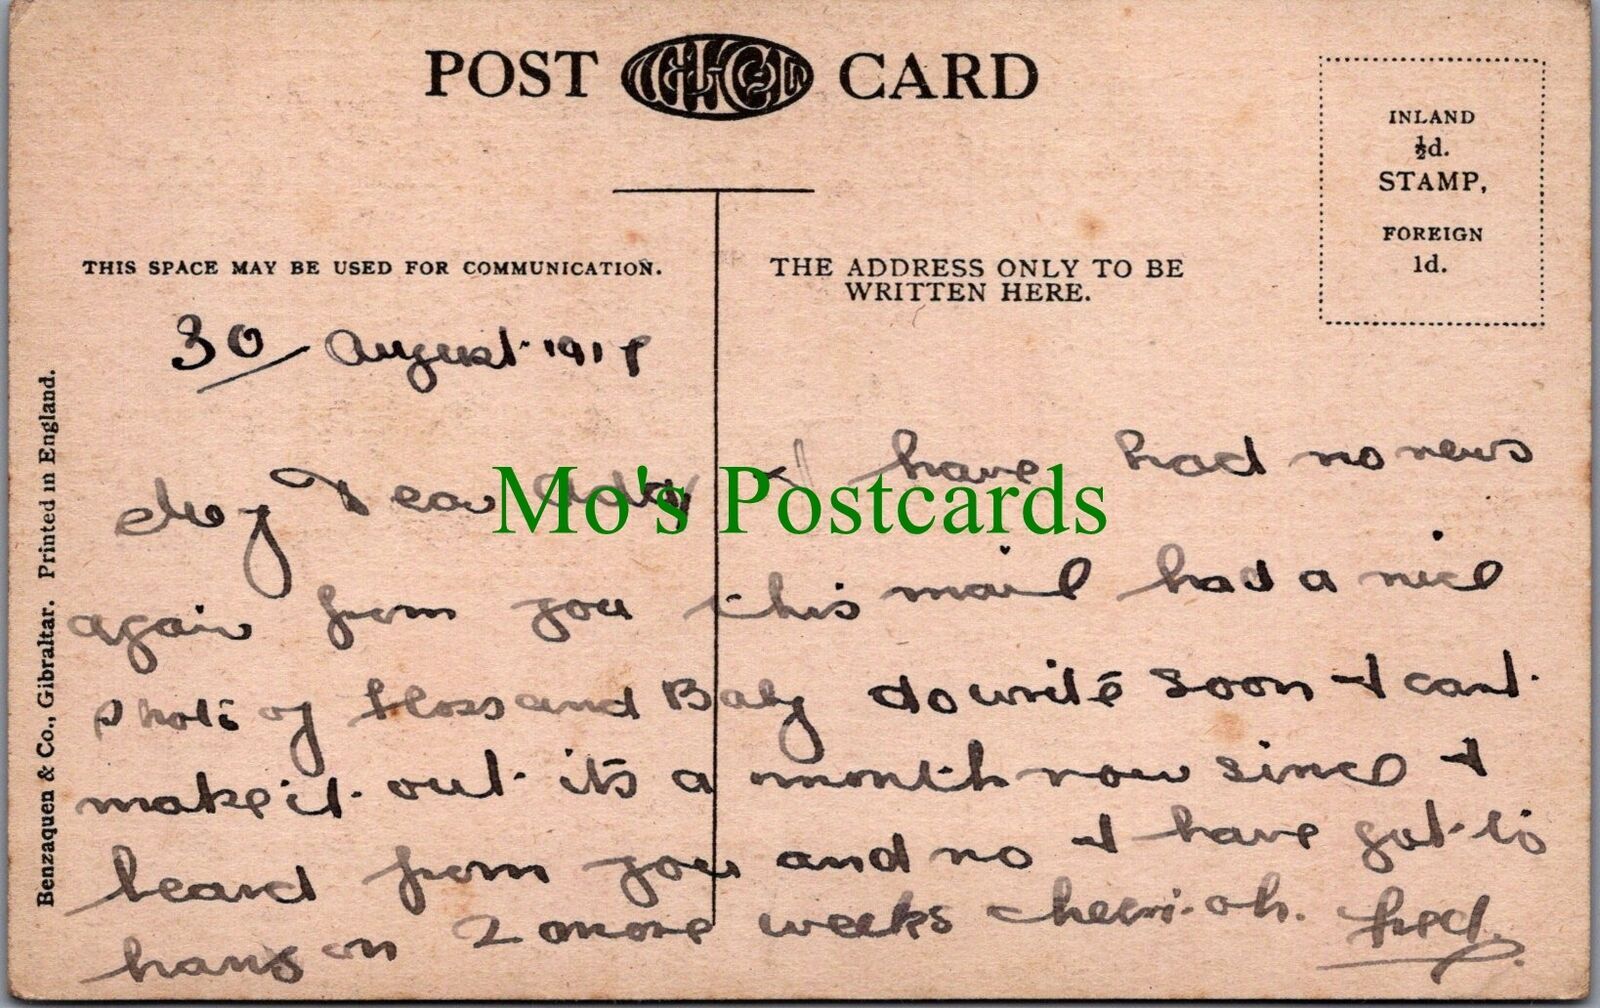 POST CARD
INLAND
½d.
STAMP,
FOREIGN
1d.
THIS SPACE MAY BE USED FOR COMMUNICATION.
THE ADDRESS ONLY TO BE
WRITTEN HERE.
Benzaquen & Co., Gibraltar. Printed in England.
30/ August 191
Mo's Postcards
My Dear I have had no news
again from you this mail had a nice
photo of Floss and Baby do write soon I cant
make it out its a month now since I
heard from you and no I have got to
hang on 2 more weeks cheeri-oh. Fred.